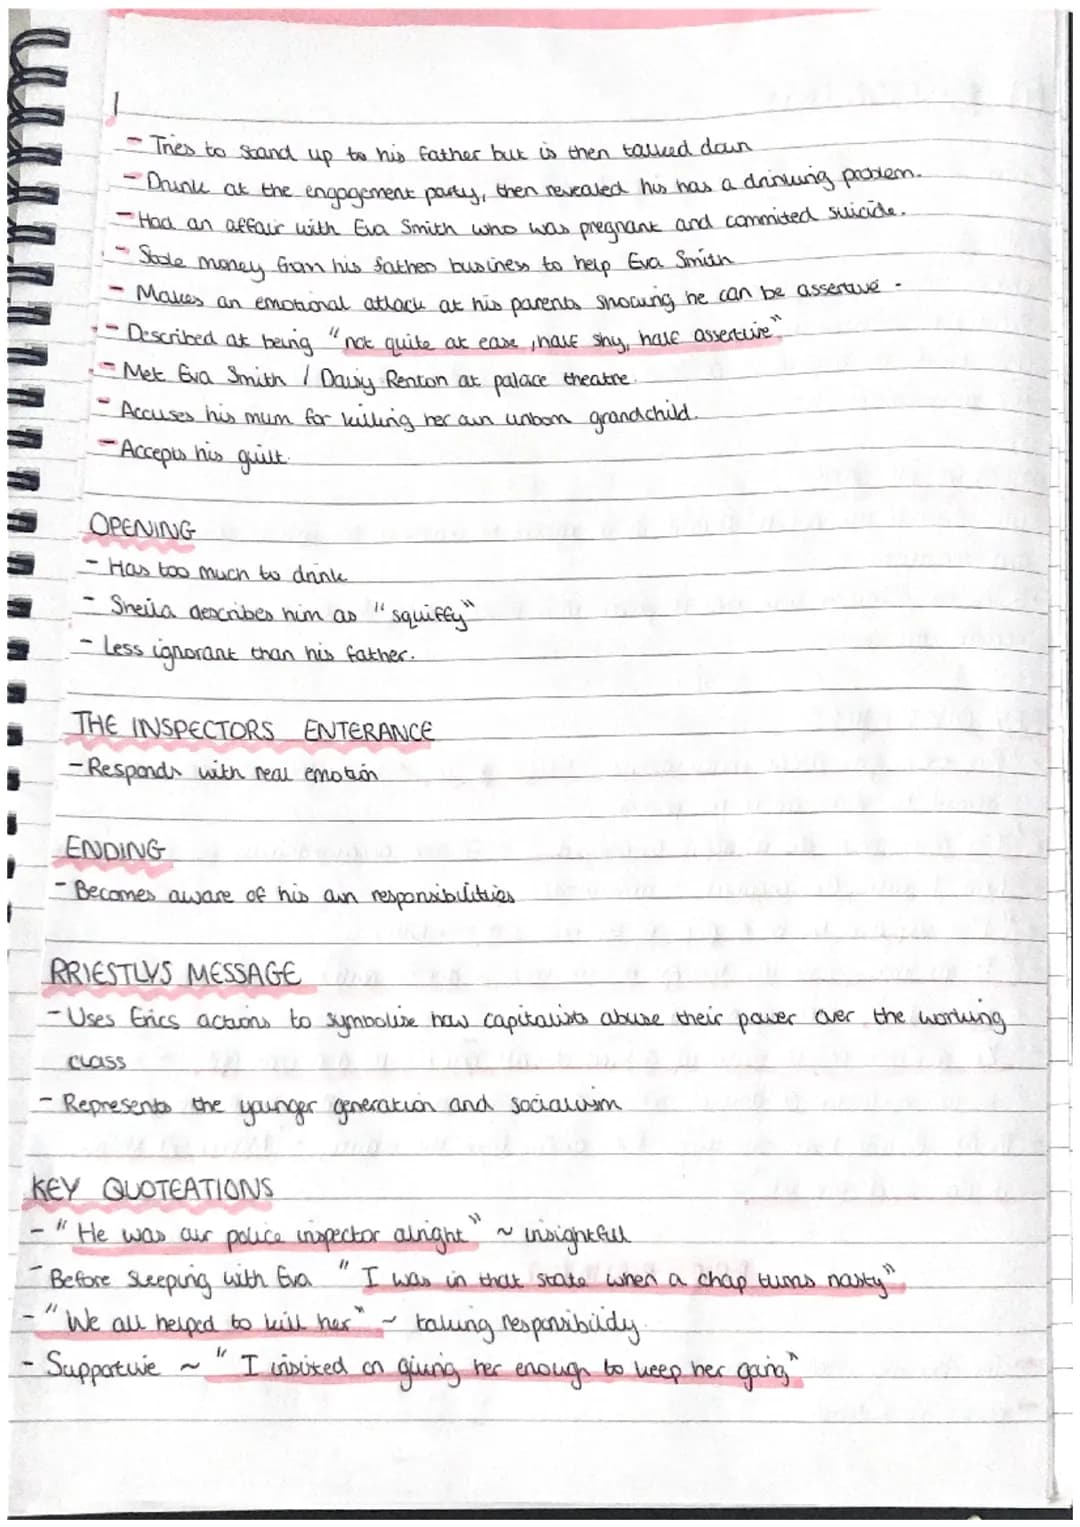 - Tries to stand up to his father but is then talked down
- Drunk at the engagement party, then revealed his has a drinking problem.
- Had an affair with Eva Smith who was pregnant and commited suicide.
- Stole money from his fathers business to help Eva Smith
- Makes an emotional attack at his parents showing he can be assertive.
- Described at being "not quite at ease, half shy, half assertive"
- Met Eva Smith / Daisy Renton at palace theatre.
- Accuses his mum for killing her own unborn grandchild.
- Accepts his guilt.
OPENING
- Has too much to drink
- Sheila describes him as "squiffy"
- Less ignorant than his father.
THE INSPECTORS ENTERANCE
- Responds with real emotion
ENDING
- Becomes aware of his own responsibilities
PRIESTLYS MESSAGE
- Uses Erics actions to symbolise how capitalists abuse their power over the working
class
- Represents the younger generation and socialism
KEY QUOTEATIONS
- "He was our police inspector alright" ~ insightful
- Before sleeping with Eva "I was in that state when a chap turns nasty"
- "We all helped to kill her" ~ taking responsibility.
- Supportive ~ "I insisted on giving her enough to keep her going"